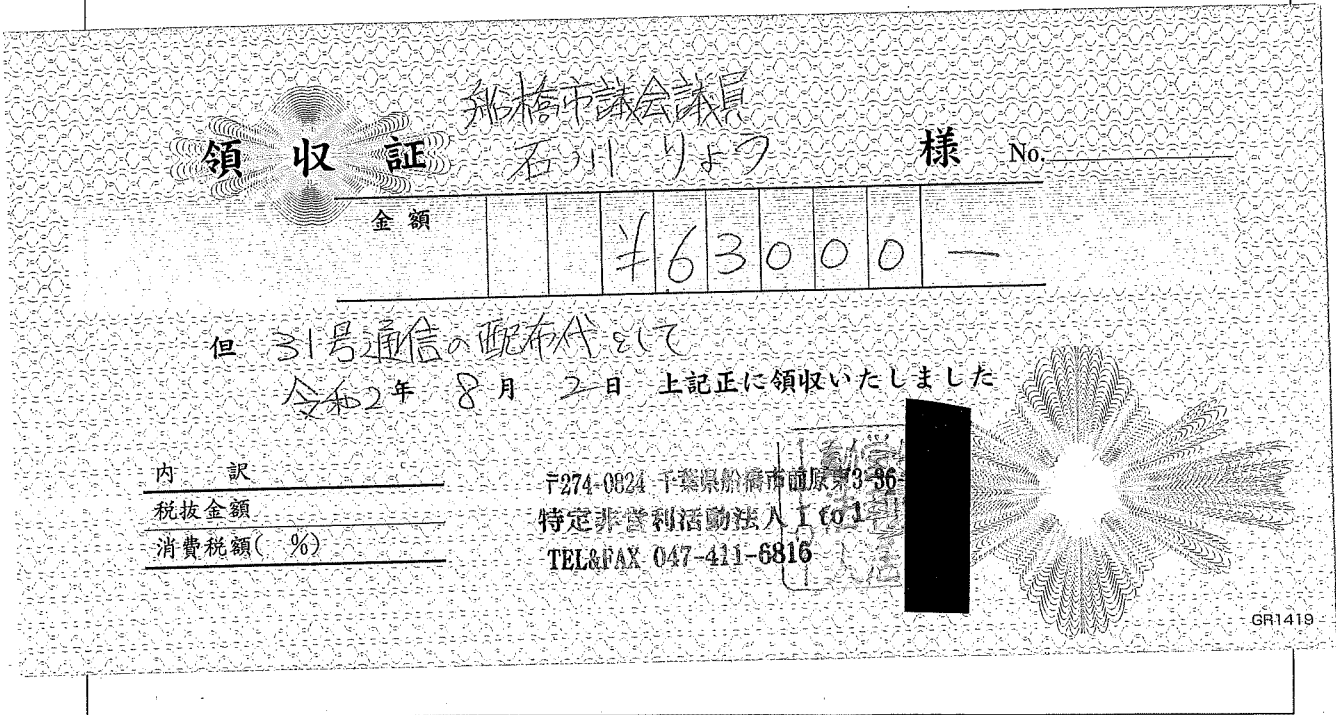 船橋市議会議員
領収証 石川りょう 様 No.
金額 ¥63000ー
但 31号通信の配布代として
令和2年8月2日 上記正に領収いたしました
内訳
税抜金額
消費税額( %)
〒274-0824 千葉県船橋市前原東3-36-
特定非営利活動法人1to1
TEL&FAX 047-411-6816
GR1419